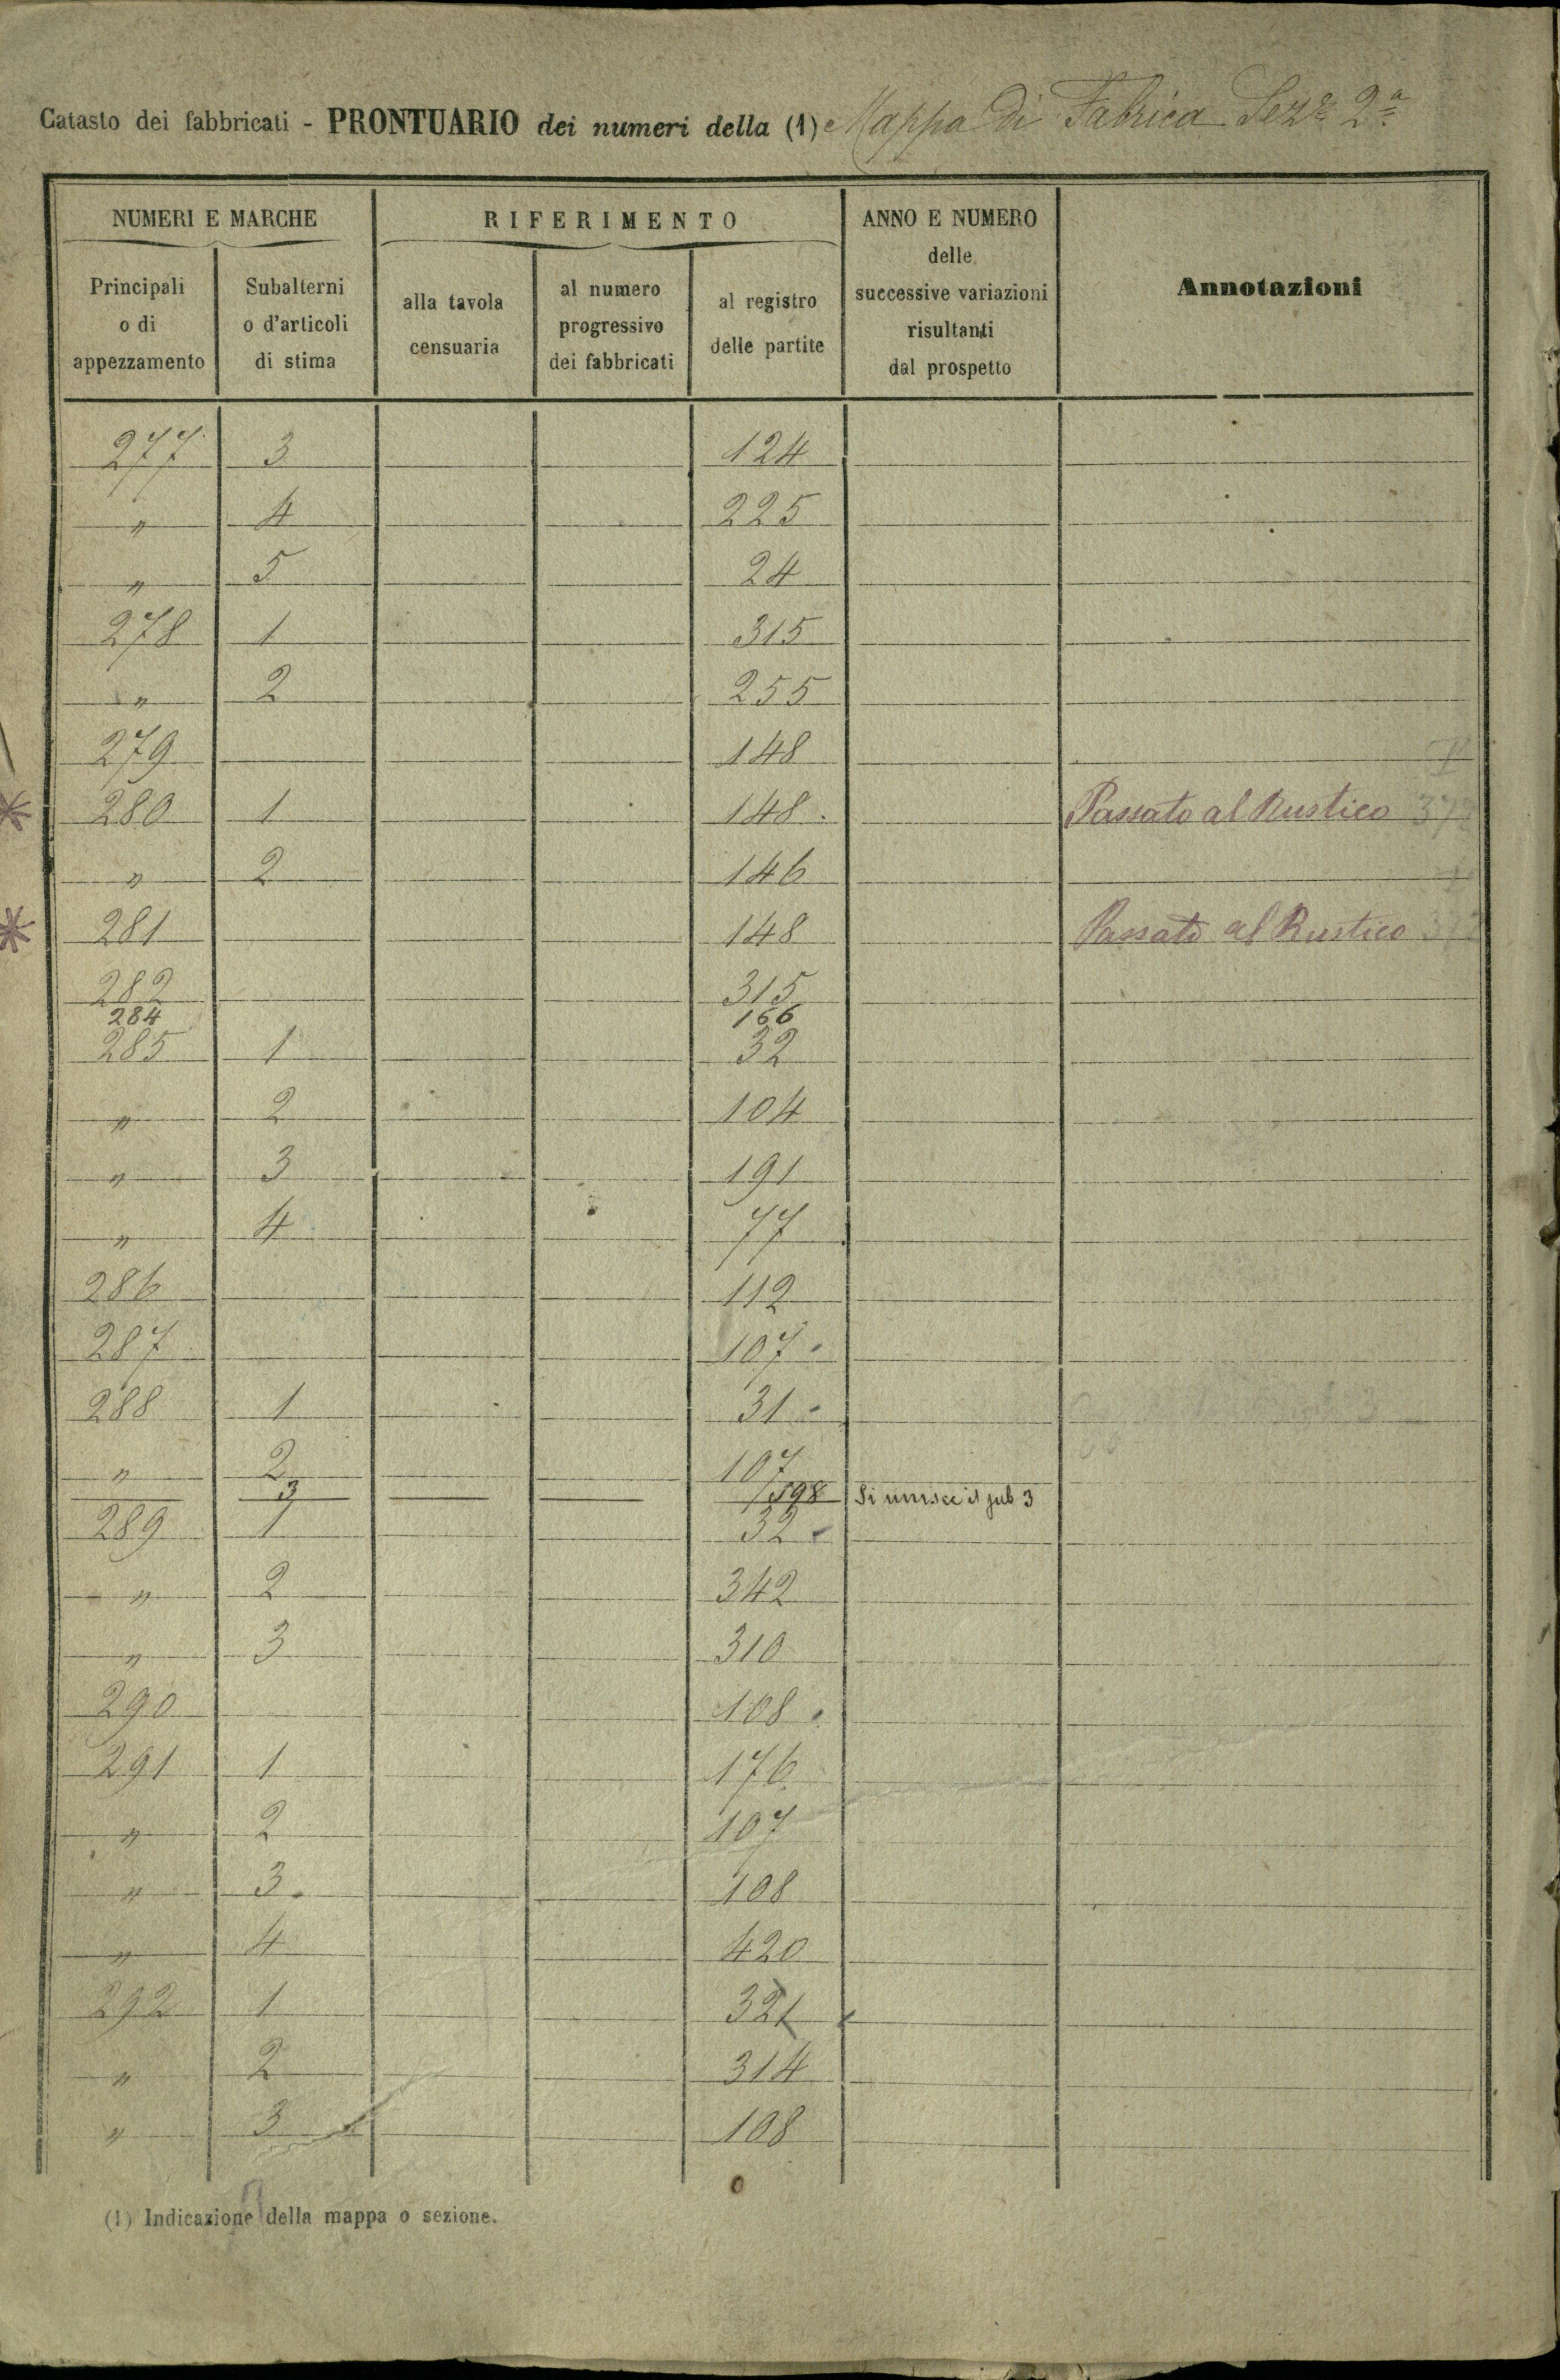 Catasto dei fabbricati - PRONTUARIO dei numeri della (1) Mappa di Fabrica Sez.e 2.a
NUMERI E MARCHE
Principali o di appezzamento
Subalterni o d'articoli di stima
RIFERIMENTO
alla tavola censuaria
al numero progressivo dei fabbricati
al registro delle partite
ANNO E NUMERO delle successive variazioni risultanti dal prospetto
Annotazioni
277 3 124
" 4 225
" 5 24
278 1 315
" 2 255
279 148
280 1 148 Passato al Rustico
" 2 146
281 148 Passato al Rustico
282 315
284 166
285 1 32
" 2 104
" 3 191
" 4 77
286 112
287 107
288 1 31
" 2 107
3 598 Si unisce il sub 3
289 1 32
" 2 342
" 3 310
290 108
291 1 176
" 2 107
" 3 108
" 4 420
292 1 321
" 2 314
" 3 108
(1) Indicazione della mappa o sezione.